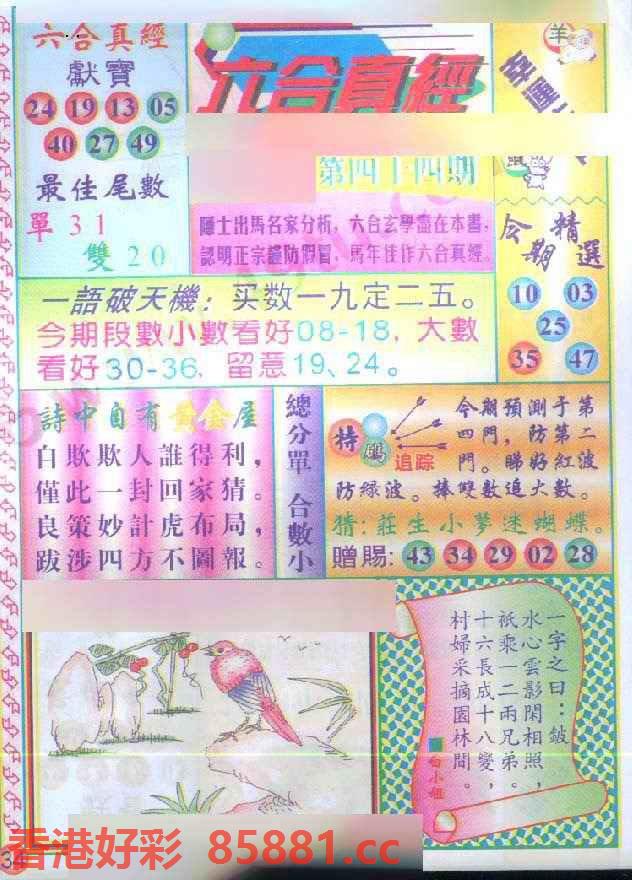 六合真經
獻寶
24 19 13 05
40 27 49
最佳尾數
單 3 1
雙 2 0
六合真經
第四十四期
隱士出馬名家分析，六合玄學盡在本書，
認明正宗謹防假冒，馬年佳作六合真經。
羊
幸運
今期精選
10 03
25
35 47
一語破天機：买数一九定二五。
今期段數小數看好08-18，大數
看好30-36，留意19、24。
詩中自有黃金屋
自欺欺人誰得利，
僅此一封回家猜。
良策妙計虎布局，
跋涉四方不圖報。
總分單 合數小
特碼
追踪
今期預測于第
四門，防第二
門。睇好紅波
防綠波。捧雙數追大數。
猜：莊生小夢迷蝴蝶。
贈賜：43 34 29 02 28
一字之曰：皺
水心雲影閑相照，
祇乘一二兩兄弟。
十六長成十八變，
村婦采摘園林間。
白小姐
34
香港好彩 85881.cc